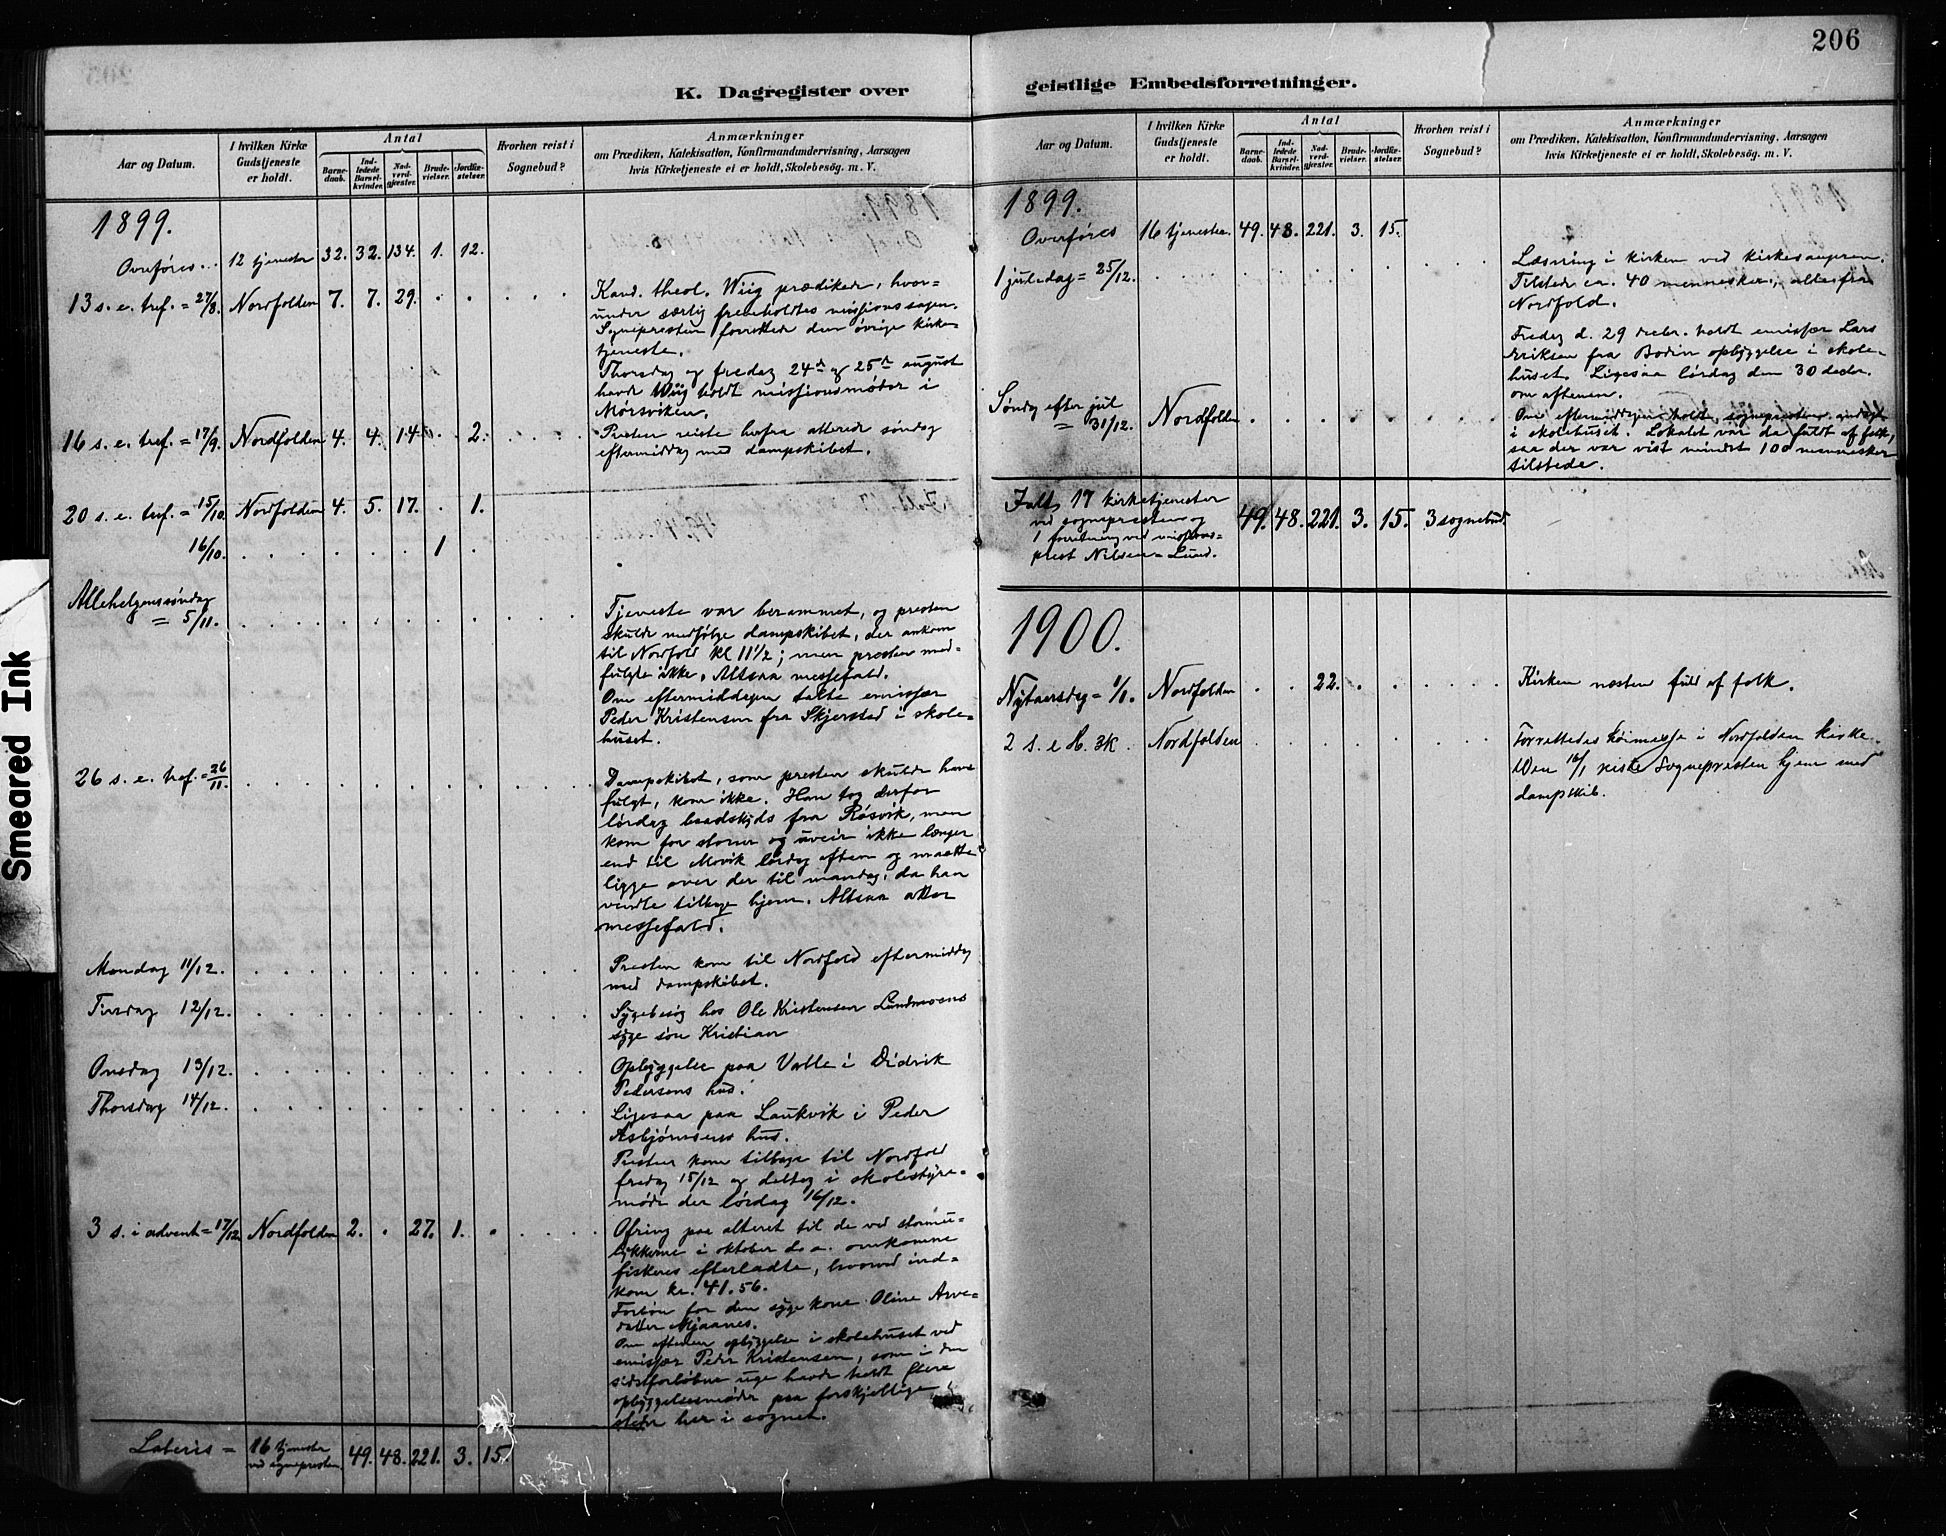 206
K. Dagregister over
geistlige Embedsforretninger.
Aar og Datum.
I hvilken Kirke
Gudstjeneste
er holdt.
Antal
Barne-
daab.
Ind-
ledede
Barsel-
kvinder.
Nad-
verd-
gjester.
Brude-
vielser.
Jordfæ-
stelser.
Hvorhen reist i
Sognebud?
Anmærkninger
om Prædiken, Katekisation, Konfirmandundervisning, Aarsagen
hvis Kirketjeneste ei er holdt, Skolebesøg. m. V.
1899.
Overføres... 12 tjenester 32. 32. 134. 1. 12.
13 s. e. tref. = 27/8. Nordfolden 7. 7. 29.
Kand. theol. Wiig prædiker, hvor=
under særlig fremholdtes missionssagen.
Sognepresten forrettede den øvrige kirke-
tjeneste.
Thorsdag og fredag 24de og 25de august
havde Wiig holdt missionsmøder i
Mørsviken.
16 s. e. tref. = 17/9. Nordfolden 4. 4. 14. 2.
Presten reiste herfra allerede søndag
eftermiddag med dampskibet.
20 s. e. tref. = 15/10. Nordfolden 4. 5. 17. 1.
16/10. 1
Allehelgenssøndag
= 5/11.
Tjeneste var berammet, og presten
skulde medfølge dampskibet, der ankom
til Nordfold kl 11 1/2; men presten med-
fulgte ikke. Altsaa messefald.
Om eftermiddagen talte emissær
Peder Kristensen fra Skjerstad i skole-
huset.
26 s. e. tref. = 26/11.
Dampskibet, som presten skulde have
fulgt, kom ikke. Han tog derfor
lørdag baadskyds fra Røsvik, men
kom for storm og uveir ikke længer
end til Movik lørdag aften og maatte
ligge over der til mandag, da han
vendte tilbage hjem. Altsaa atter
messefald.
Mandag 11/12.
Presten kom til Nordfold eftermiddag
med dampskibet.
Tirsdag 12/12.
Sygebesøg hos Ole Kristensen Lundmoens
syge søn Kristian
Onsdag 13/12.
Opbyggelse paa Valle i Didrik
Pedersens hus.
Thorsdag 14/12.
Ligesaa paa Laukvik i Peder
Asbjørnsens hus.
Presten kom tilbage til Nordfold
fredag 15/12 og deltog i skolestyre-
møde der lørdag 16/12.
3 s. i advent = 17/12 Nordfolden 2. 27. 1.
Ofring paa alteret til de ved stormu=
lykkerne i oktober d. a. omkomne
fiskeres efterladte, hvorved ind=
kom kr. 41.56.
Forbøn for den syge kone Oline Arve=
datter Mjaanes.
Om aftenen opbyggelse i skolehuset ved
emissær Peder Kristensen, som i den
sidstforløbne uge havde holdt flere
opbyggelsesmøder paa forskjellige
steder her i sognet.
Lateris = 16 tjenester
ved sognepresten. 49. 48. 221. 3. 15.
Aar og Datum.
I hvilken Kirke
Gudstjeneste
er holdt.
Antal
Barne-
daab.
Ind-
ledede
Barsel-
kvinder.
Nad-
verd-
gjester.
Brude-
vielser.
Jordfæ-
stelser.
Hvorhen reist i
Sognebud?
Anmærkninger
om Prædiken, Katekisation, Konfirmandundervisning, Aarsagen
hvis Kirketjeneste ei er holdt, Skolebesøg. m. V.
1899.
Overføres 16 tjenester. 49. 48. 221. 3. 15.
1 juledag = 25/12.
Læsning i kirken ved kirkesangeren.
Tilstede ca. 40 mennesker, alle fra
Nordfold.
Fredag d. 29 decbr. holdt emissær Lars
Eriksen fra Bodin opbyggelse i skole-
huset. Ligesaa lørdag den 30 decbr.
om aftenen.
Søndag efter jul
= 31/12. Nordfolden
Om eftermiddagen holdt sognepresten andagt
i skolehuset. Lokalet var da fuldt af folk,
saa der var vist mindst 100 mennesker
tilstede.
Ialt 17 kirketjenester
ved sognepresten og
1 forretning ved missions=
prest Nilsen-Lund. 49. 48. 221. 3. 15. 3 sognebud.
1900.
Nytaarsdag = 1/1. Nordfolden 22.
Kirken næsten fuld af folk.
2 s. e H. 3k. Nordfolden
Forrettedes høimesse i Nordfolden kirke.
Den 16/1 reiste Sognepresten hjem med
dampskib.
Smeared Ink